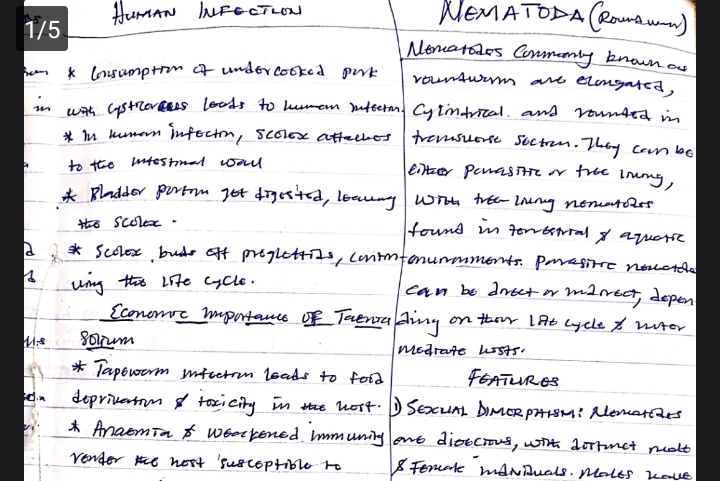 1/5
HUMAN INFECTION
* Consumption of undercooked pork
with cysticercus leads to human infection.
* In human infectn, scolex attaches
to the intestinal wall
* Bladder portion get digested, leaving
the scolex.
* Scolex buds off proglottids, contin
uing the life cycle.
Economic Importance OF Taenia
Solium
* Tapeworm infection leads to food
deprivation & toxicity in the host.
* Anaemia & weakened immunity
render the host susceptible to
NEMATODA (Roundworm)
Nematodes Commonly known as
roundworm are elongated,
Cylindrical and rounded in
transverse section. They can be
either parasitic or free living,
with free-living nematodes
found in terrestrial & aquatic
environments. parasitic nematode
can be direct or indirect, depen
ding on their life cycle & inter
mediate hosts.
FEATURES
1) SEXUAL DIMORPHISM: Nematodes
are dioecious, with distinct male
& Female individuals. Males have